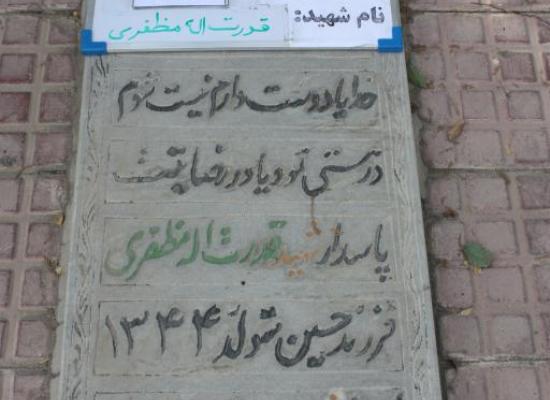 نام شهید: قدرت اله مظفری
خدایا دوست دارم نیست شوم
در هستی تو و یا در رضایت
پاسدار شهید قدرت اله مظفری
فرزند حسین متولد ۱۳۴۴